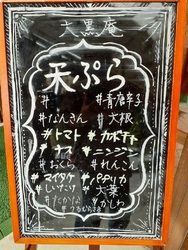 大黒庵
天ぷら
# #青唐辛子
#なんきん #大根
#トマト #カボチャ
#ナス #ニンジン
#おくら #れんこん
#マイタケ #パプリカ
#しいたけ #大葉
#たかな #かしわ